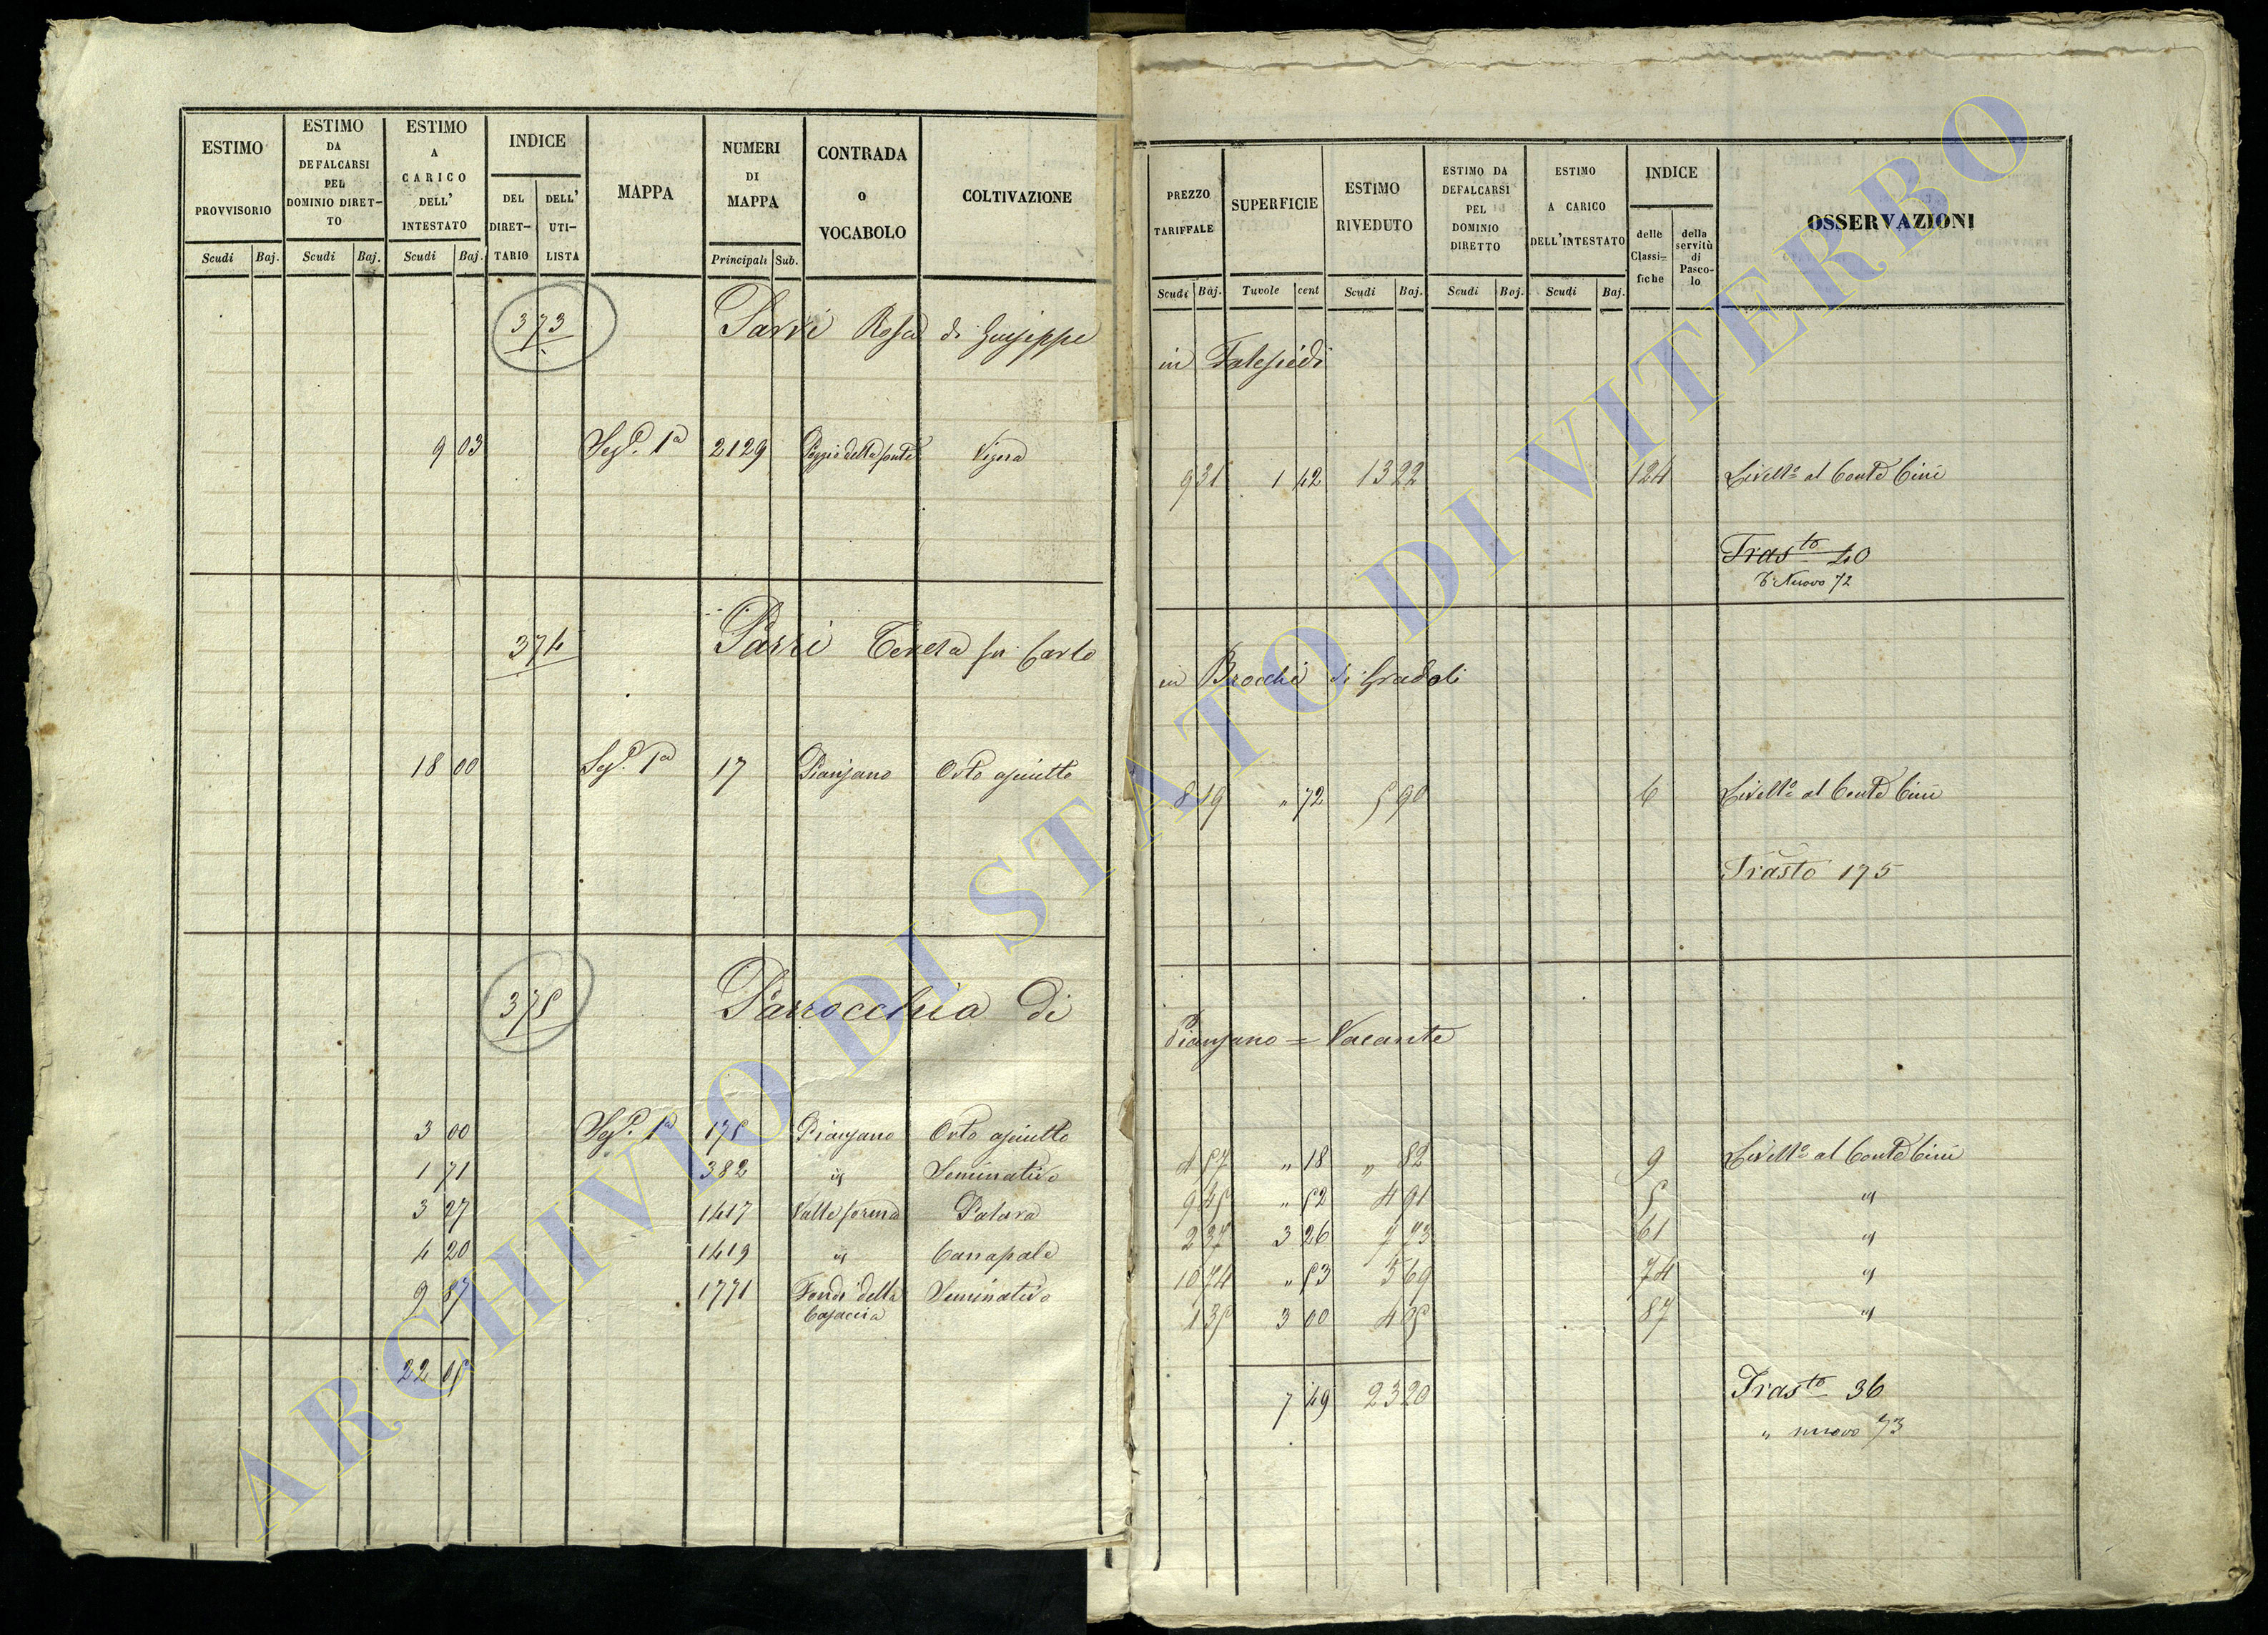 ESTIMO PROVVISORIO
Scudi Baj.
ESTIMO DA DEFALCARSI PEL DOMINIO DIRET-TO
Scudi Baj.
ESTIMO A CARICO DELL' INTESTATO
Scudi Baj.
INDICE
DEL DIRET-TARIO
DELL' UTI-LISTA
MAPPA
NUMERI DI MAPPA
Principali Sub.
CONTRADA o VOCABOLO
COLTIVAZIONE
PREZZO TARIFFALE
Scudi Baj.
SUPERFICIE
Tavole cent
ESTIMO RIVEDUTO
Scudi Baj.
ESTIMO DA DEFALCARSI PEL DOMINIO DIRETTO
Scudi Boj.
ESTIMO A CARICO DELL'INTESTATO
Scudi Baj.
INDICE
delle Classi-fiche
della servitù di Pasco-lo
OSSERVAZIONI
373 Parri Rosa di Giuseppe in Falesiedi
9 03 Sez.e 1a 2129 Poggio della fonte Vigna 9 31 1 42 13 22 124 Livell.o al Conte Cini
Tras.to 40
T. Nuovo 72
374 Parri Teresa fu Carlo in Brocchi di Gradoli
18 00 Sez.e 1a 17 Pianzano Orto asciutto 8 19 " 72 5 90 6 Livell.o al Conte Cini
Trasto 175
375 Parrocchia di Pianzano = Vacante
3 00 Sez.e 1a 175 Pianzano Orto asciutto 4 57 " 18 " 82 9 Livell.o al Conte Cini
1 71 382 id Seminativo 9 45 " 52 4 91 5 id
3 27 1417 Valle forma Palava 2 37 3 26 7 73 61 id
4 20 1419 id Canapale 10 74 " 53 5 69 74 id
9 87 1771 Fondi della Casaccia Seminativo 1 35 3 00 4 05 87 id
22 05 7 49 23 20
Tras.to 36
" nuovo 73
ARCHIVIO DI STATO DI VITERBO